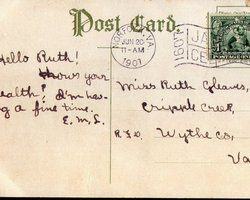 Post Card
NORFOLK, VA.
JUN 20
11-AM
1907
1907
JA
CE
Hello Ruth!
How's your
health? I'm hav-
ing a fine time.
E.M.S.
Miss Ruth Cleaves,
Cripple Creek,
R.F.D. Wythe Co.
Va